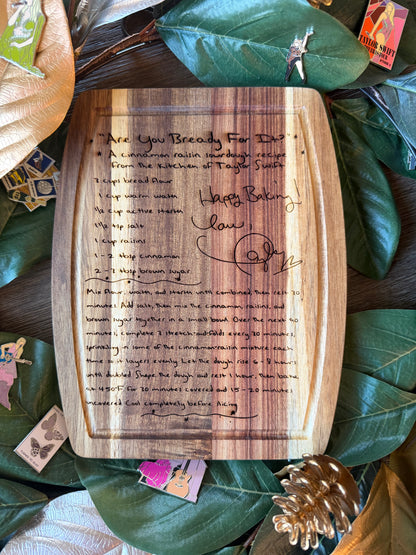 "Are You Bready For It?"
A cinnamon raisin sourdough recipe
from the kitchen of Taylor Swift
3 cups bread flour
1 cup warm water
1/2 cup active starter
1 1/2 tsp salt
1 cup raisins
1 - 2 tbsp cinnamon
2 - 3 tbsp brown sugar
Happy Baking!
Love,
Mix flour, water, and starter until combined, then rest 30
minutes. Add salt, then mix the cinnamon, raisins, and
brown sugar together in a small bowl. Over the next 90
minutes, complete 3 stretch-and-folds every 30 minutes,
sprinkling in some of the cinnamon raisin mixture each
time so it layers evenly. Let the dough rise 6 - 8 hours
until doubled. Shape the dough and rest 1 hour, then bake
at 450°F for 20 minutes covered and 15 - 20 minutes
uncovered. Cool completely before slicing.
TAYLOR SWIFT